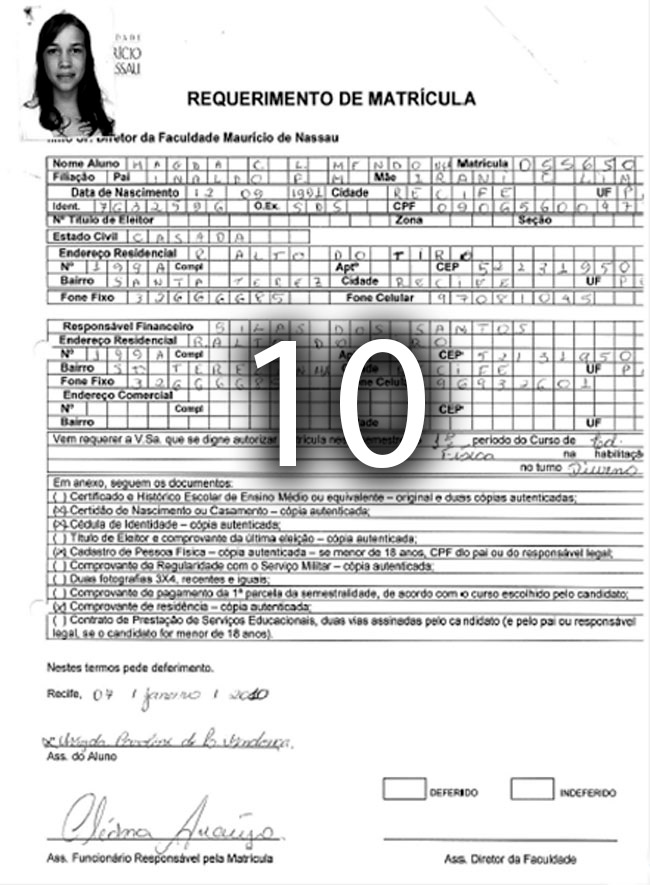 DADE
RÍCIO
SSAU
REQUERIMENTO DE MATRÍCULA
Diretor da Faculdade Maurício de Nassau
Nome Aluno MAGDA C. L. MENDO Matrícula 055650
Filiação Pai INALDO Mãe IRANI
Data de Nascimento 12 09 1991 Cidade RECIFE UF P
Ident. 7632596 O.Ex. SDS CPF 0906560097
Nº Título de Eleitor Zona Seção
Estado Civil CASADA
Endereço Residencial R ALTO DO TIRO
Nº 199A Compl Aptº CEP 52231950
Bairro SANTA TEREZ Cidade RECIFE UF P
Fone Fixo 32666685 Fone Celular 97081045
Responsável Financeiro SILAS DOS SANTOS
Endereço Residencial R ALTO DO
Nº 199A Compl CEP 52131950
Bairro UF P
Fone Fixo Celular 96932601
Endereço Comercial
Nº Compl CEP
Bairro UF
10
Vem requerer a V.Sa. que se digne autorizar período do Curso de Ed.
Física na habilitaçã
no turno Diurno
Em anexo, seguem os documentos:
( ) Certificado e Histórico Escolar de Ensino Médio ou equivalente – original e duas cópias autenticadas;
(x) Certidão de Nascimento ou Casamento – cópia autenticada;
(x) Cédula de Identidade – cópia autenticada;
( ) Título de Eleitor e comprovante da última eleição – cópia autenticada;
(x) Cadastro de Pessoa Física – cópia autenticada – se menor de 18 anos, CPF do pai ou do responsável legal;
( ) Comprovante de Regularidade com o Serviço Militar – cópia autenticada;
( ) Duas fotografias 3X4, recentes e iguais;
( ) Comprovante de pagamento da 1ª parcela da semestralidade, de acordo com o curso escolhido pelo candidato;
(x) Comprovante de residência – cópia autenticada;
( ) Contrato de Prestação de Serviços Educacionais, duas vias assinadas pelo candidato (e pelo pai ou responsável
legal, se o candidato for menor de 18 anos).
Nestes termos pede deferimento.
Recife, 07 / janeiro / 2010
Magda Caroline de L. Mendonça
Ass. do Aluno
DEFERIDO INDEFERIDO
Araújo
Ass. Funcionário Responsável pela Matrícula Ass. Diretor da Faculdade